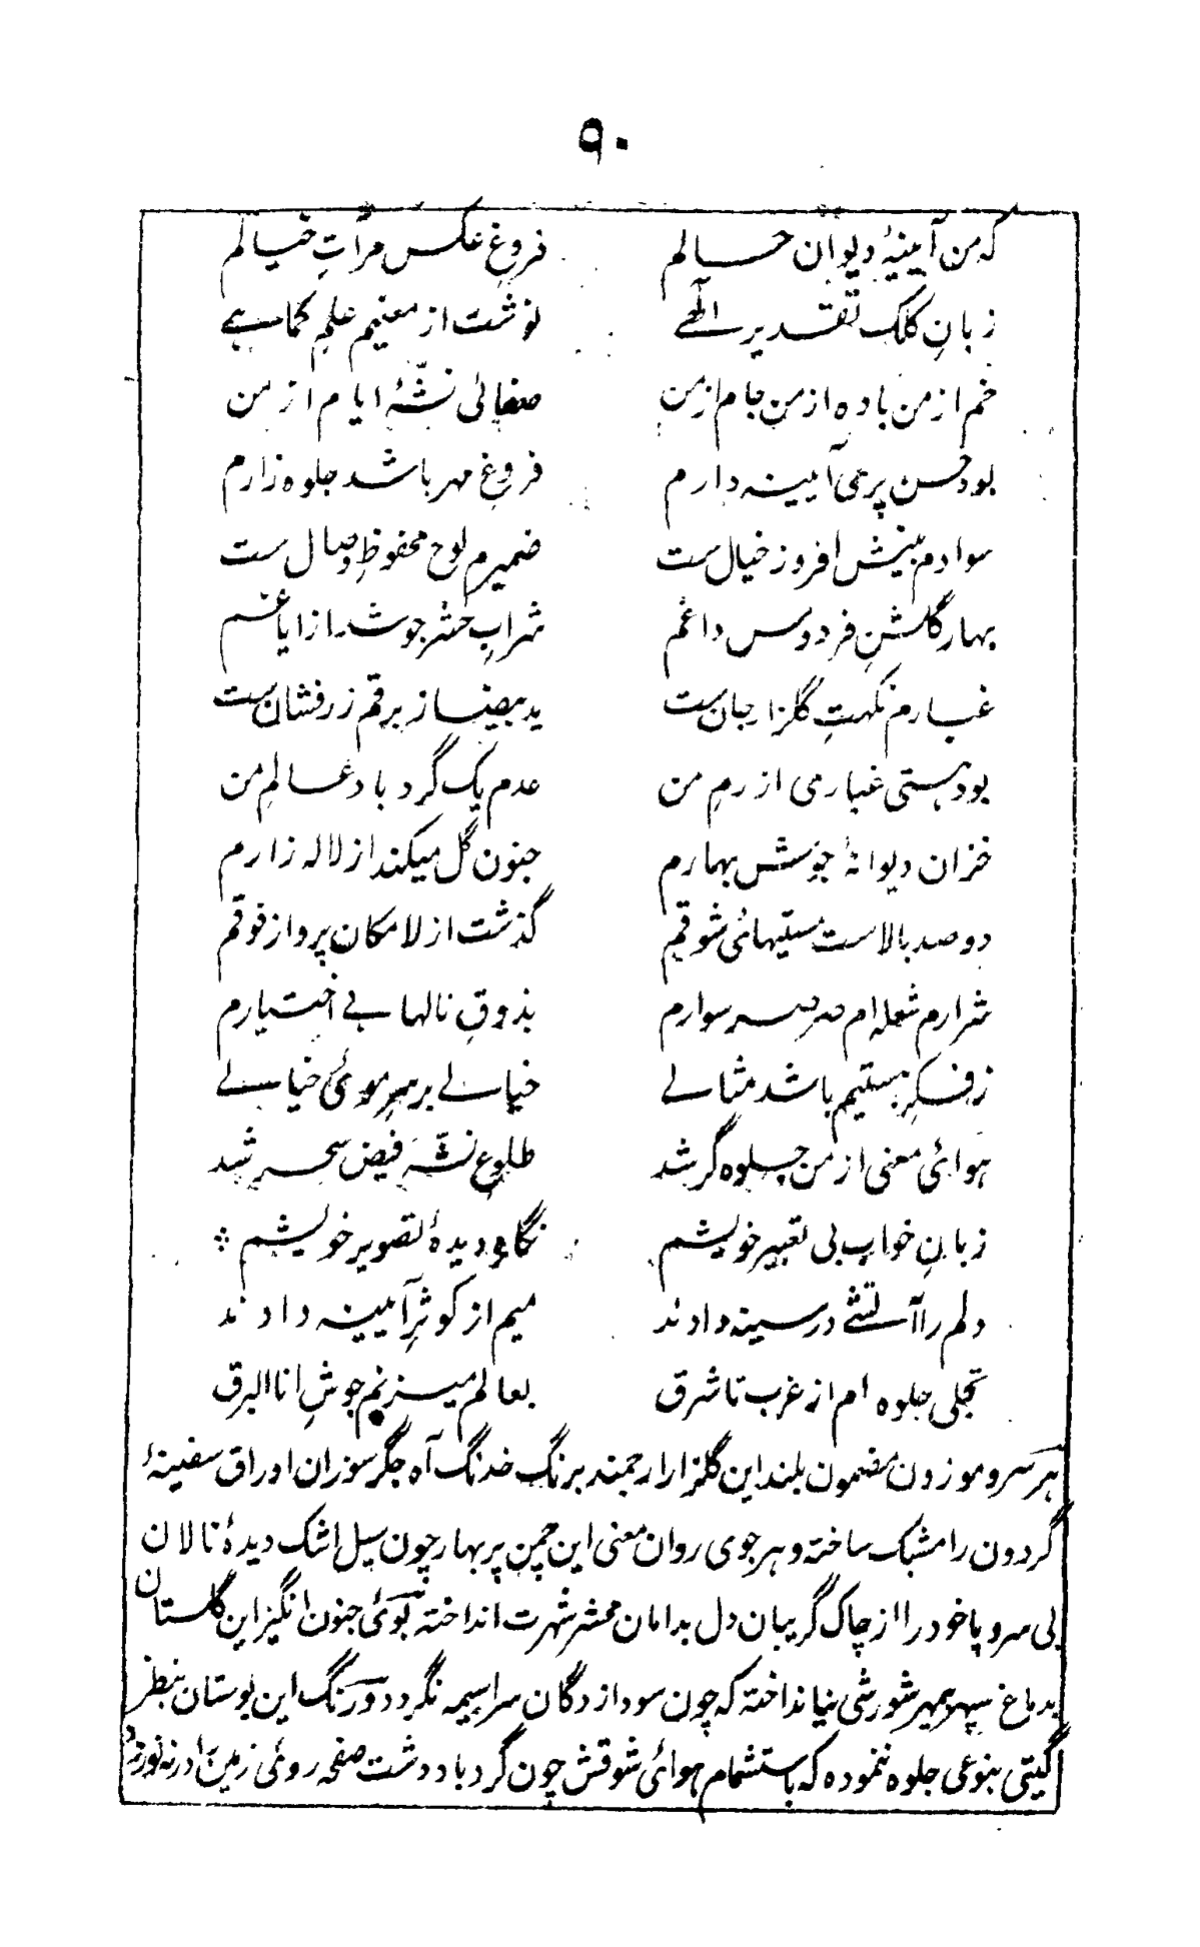 ۹۰
که من آیینهٔ دیوان حسالم فروغِ عکس مرآتِ خیالم
زبانِ کلک تقدیر الٰهے نوشت از معنیم علمِ کماہے
خم از من باده از من جام از من صفائی نشّهٔ ایام از من
بود حسن پرمی آیینه دارم فروغِ مهر باشد جلوه زارم
سوادم بینش افروز خیال ست ضمیرم لوح محفوظِ وصال ست
بهار گلشنِ فردوس داغم شرابِ حشر جوشد از ایاغم
غبارم نکهتِ گلزار جان ست ید بیضا ز برقم زرفشان ست
بود هستی غباری از رمِ من عدم یک گرد باد عالمِ من
خزان دیوانهٔ جوشش بهارم جنون گل میکند از لاله زارم
دو صد بالاست مستیهائی شوقم گذشت از لامکان پرواز فوقم
شرارم شعله ام صرصر سوارم بذوقِ نالها بے اختیارم
ز فکرِ هستیم باشد مثالے خیالے بر سرِ موئی خیالے
هوائی معنی از من جلوه گر شد طلوع نشّه فیض سحر شد
زبانِ خواب بی تعبیر خویشم نگاهِ دیدهٔ تصویر خویشم
دلم را آتشے در سینه دادند میم از کوثرِ آیینه دادند
تجلی جلوه ام از غرب تا شرق بعالم میزنم جوشِ انا البرق
هر سرو موزون مضمون بلند این گلزار ارجمند برنگ خدنگ آه جگر سوزان اوراق سفینهٔ
گردون را مشبک ساخته و هر جوی روان معنی این چمن پر بهار چون سیل اشک دیدهٔ نالان
بی سر و پا خود را از چاک گریبان دل بدامان محشر شهرت انداخته بوئی جنون انگیز این گلستان
بدماغ سپهر شورشی نیانداخته که چون سودازدگان سراسیمه نگردد و رنگ این بوستان بنظر
گیتی بنوعی جلوه ننموده که باستشمام هوائی شوقش چون گردباد دشت صفحه روئی زمین را درنه نوردد